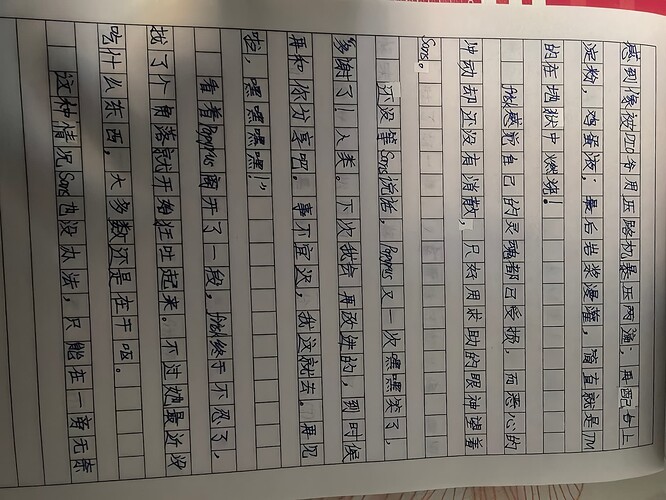 感到像被DIO爷用压路机暴压两遍；再配上
淀粉，鸡蛋液；最后岩浆漫灌，简直就是TM
的在地狱中燃烧！
感觉自己的灵魂都已受损，而恶心的
冲动却还没有消散，只好用求助的眼神望着
Sans。
还没等Sans说话，Papyrus又一次嘿嘿笑了，
“多谢了！人类。下次我会再改进的，到时候
再和你分享吧。事不宜迟，我这就去。再见
啦，嘿嘿嘿嘿！”
看着Papyrus离开了一段，终于不忍了，
找了个角落就开始狂吐起来。不过她最近没
吃什么东西，大多数还是在干呕。
这种情况Sans也没办法，只能在一旁无奈